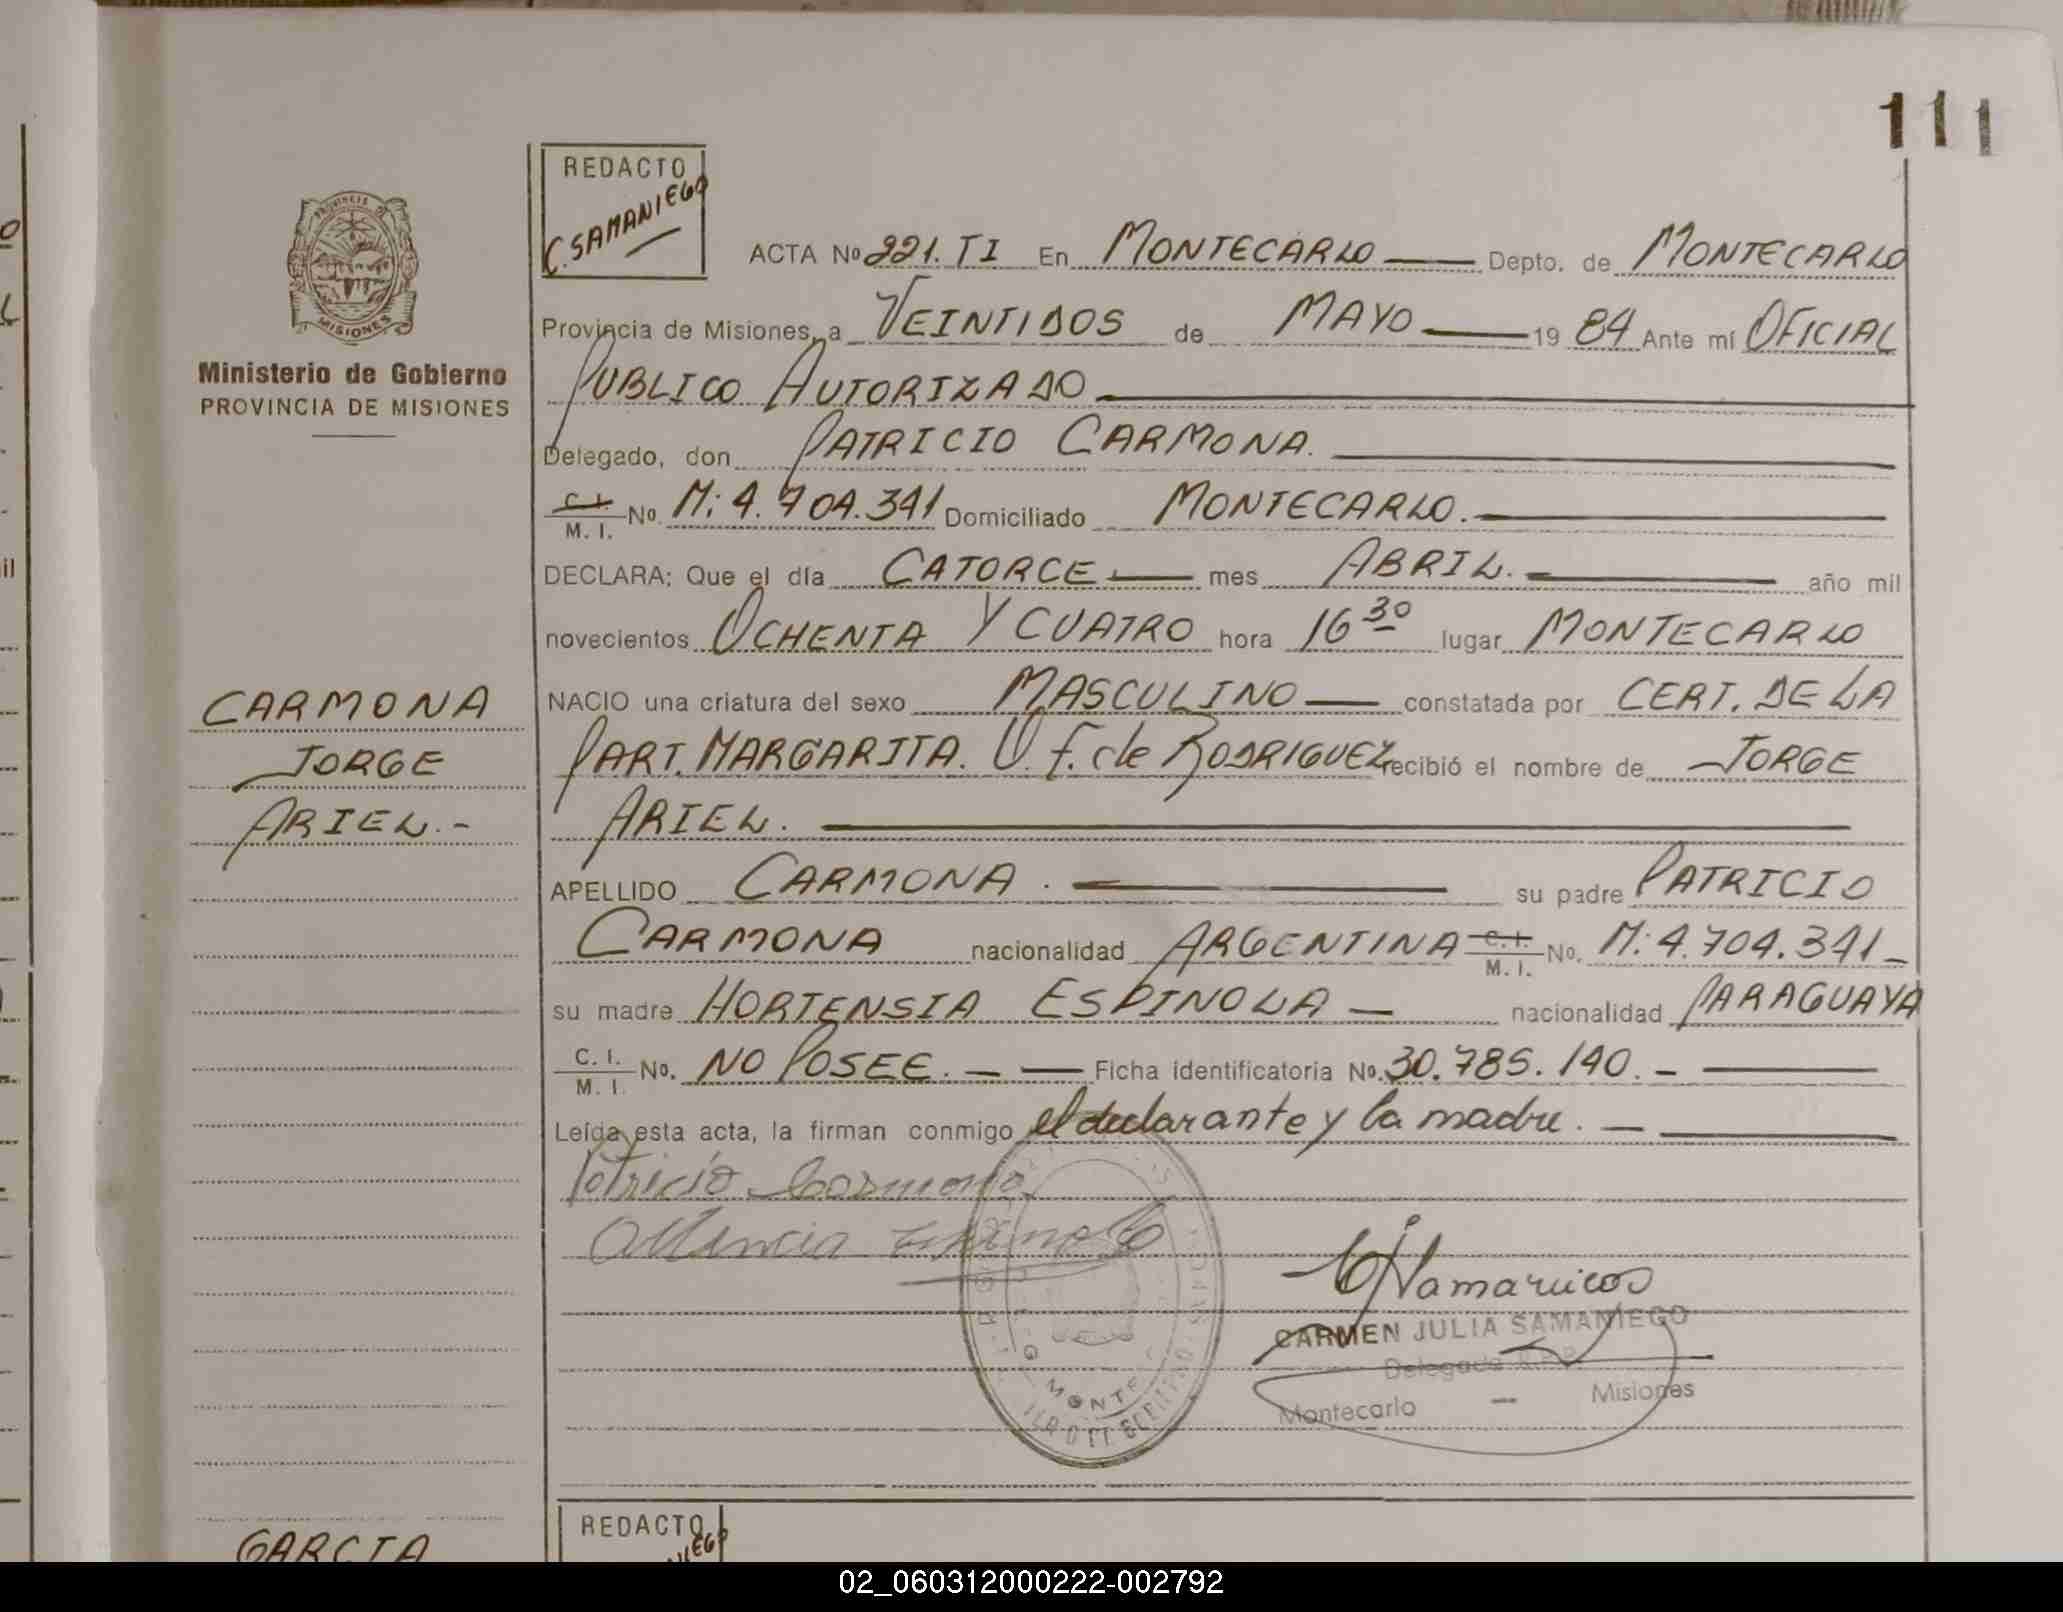 111
REDACTO
C. SAMANIEGO
PROVINCIA D
MISIONES
Ministerio de Gobierno
PROVINCIA DE MISIONES
ACTA No 221. TI En MONTECARLO Depto. de MONTECARLO
Provincia de Misiones, a VEINTIDOS de MAYO 1984 Ante mí OFICIAL
PUBLICO AUTORIZADO
Delegado, don PATRICIO CARMONA.
C. I. / M. I. No. M: 4.704.341 Domiciliado MONTECARLO.
DECLARA; Que el día CATORCE mes ABRIL. año mil
novecientos OCHENTA Y CUATRO hora 16 30 lugar MONTECARLO
NACIO una criatura del sexo MASCULINO constatada por CERT. DE LA
PART. MARGARITA. V. F. de RODRIGUEZ recibió el nombre de JORGE
ARIEL.
APELLIDO CARMONA. su padre PATRICIO
CARMONA nacionalidad ARGENTINA C. I. / M. I. No. M: 4.704.341_
su madre HORTENSIA ESPINOLA — nacionalidad PARAGUAYA
C. I. / M. I. No. NO POSEE. — Ficha identificatoria No. 30.785.140. —
Leída esta acta, la firman conmigo el declarante y la madre. —
Patricio Carmona
CARMEN JULIA SAMANIEGO
Delegada R.P.P.
Montecarlo — Misiones
MONTE
CARMONA
JORGE
ARIEL.-
GARCIA
REDACTO
02_060312000222-002792